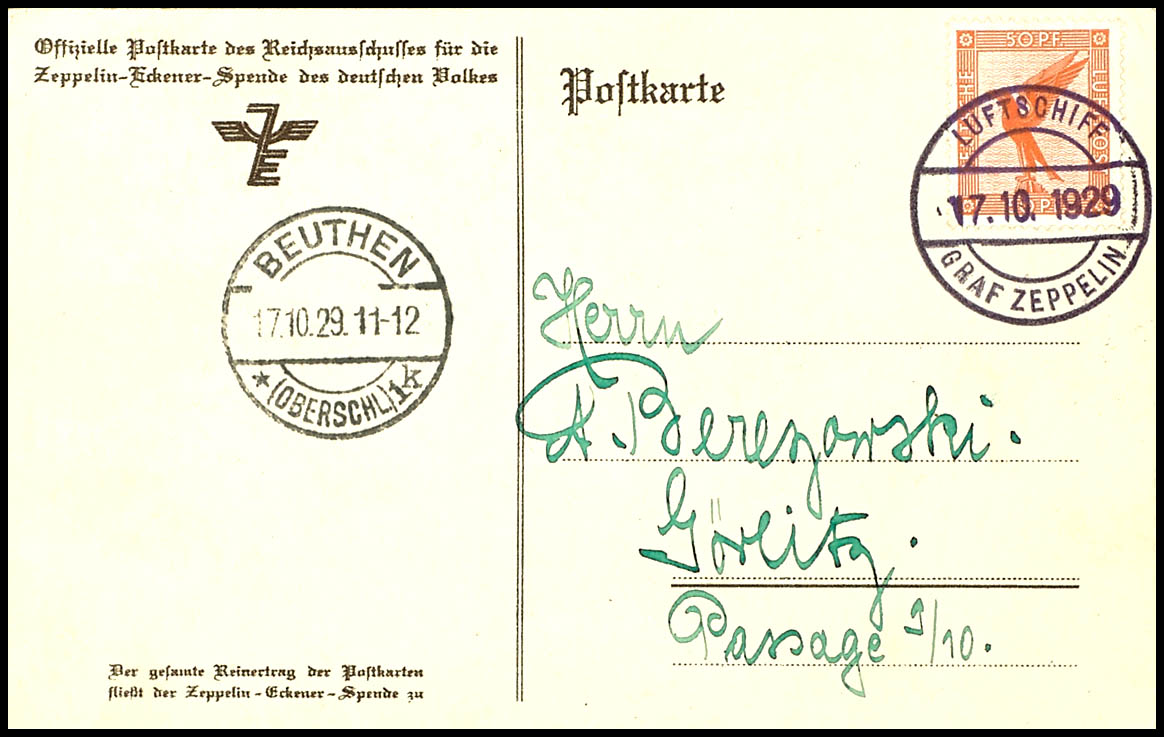 Offizielle Postkarte des Reichsausschusses für die
Zeppelin-Eckener-Spende des deutschen Volkes
ZE
Postkarte
50 PF.
LUFTSCHIFF
17.10.1929
GRAF ZEPPELIN
BEUTHEN
17.10.29.11-12
* (OBERSCHL) 1k
Herrn
A. Berezowski.
Görlitz.
Passage 9/10.
Der gesamte Reinertrag der Postkarten
fließt der Zeppelin-Eckener-Spende zu